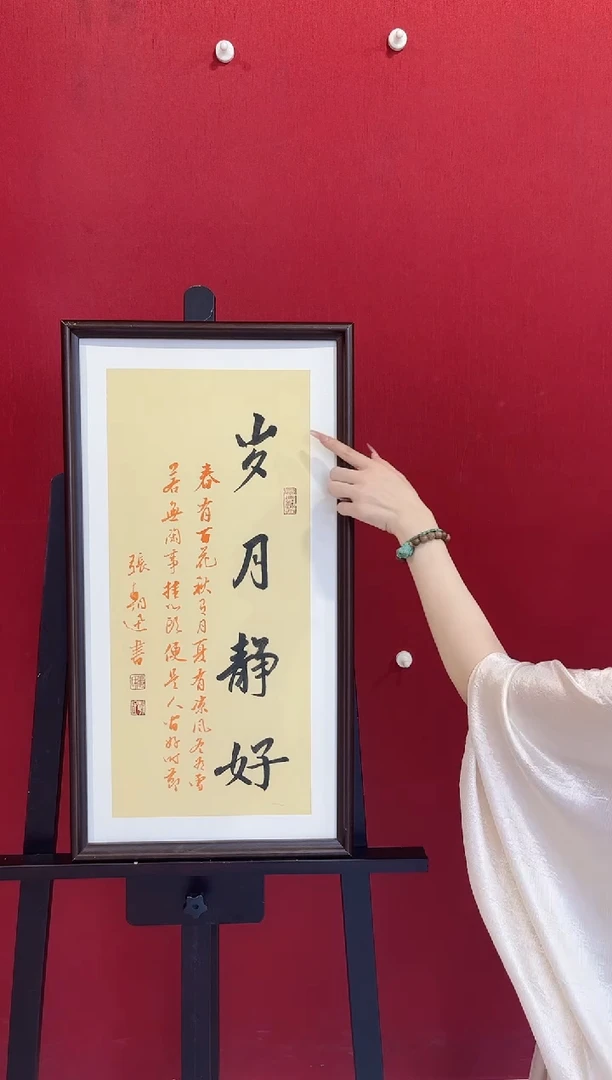 岁月静好
春有百花秋有月夏有凉风冬有雪
若無闲事挂心头便是人间好时节
張書